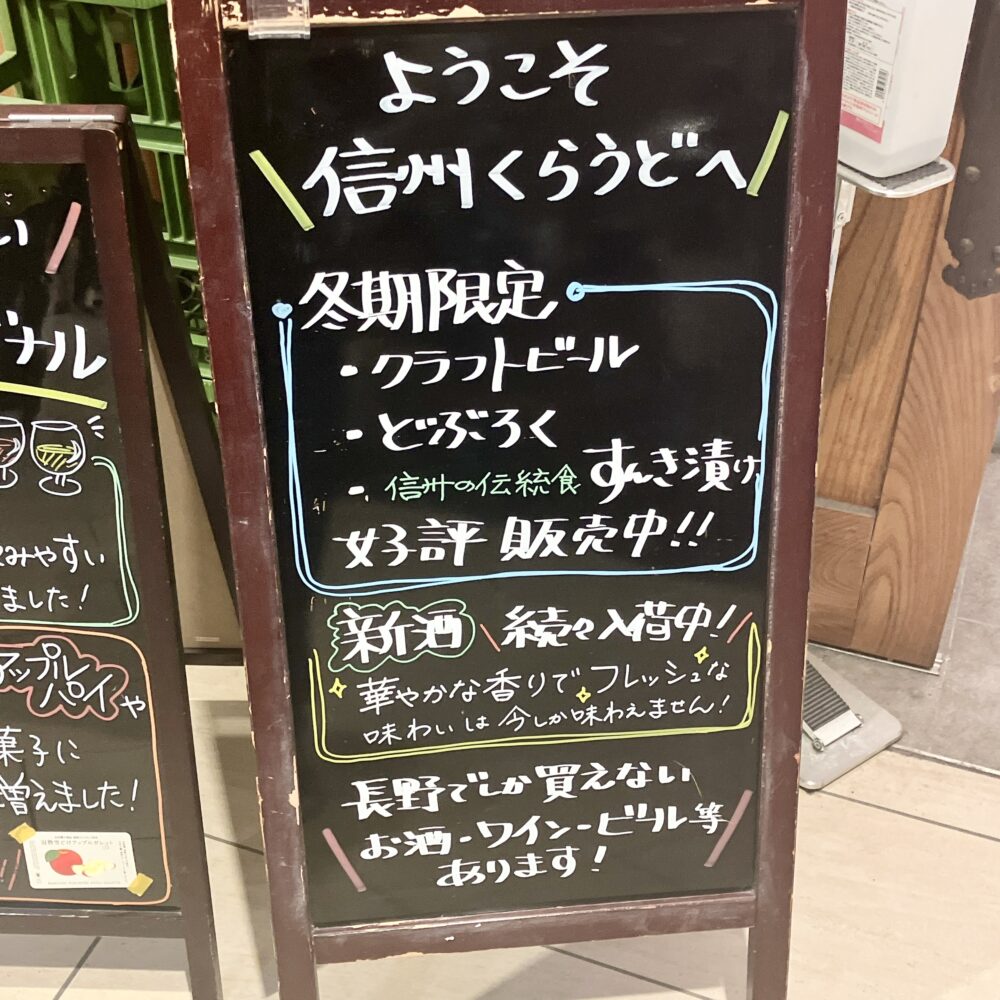 ようこそ
信州くらうどへ
冬期限定
・クラフトビール
・どぶろく
・信州の伝統食 すんき漬け
好評販売中!!
新酒 続々入荷中!
華やかな香りで フレッシュな
味わいは 今しか味わえません!
長野でしか買えない
お酒-ワイン-ビール等
あります!
い
ナル
みやすい
ました!
アップル
パイや
菓子に
増えました!